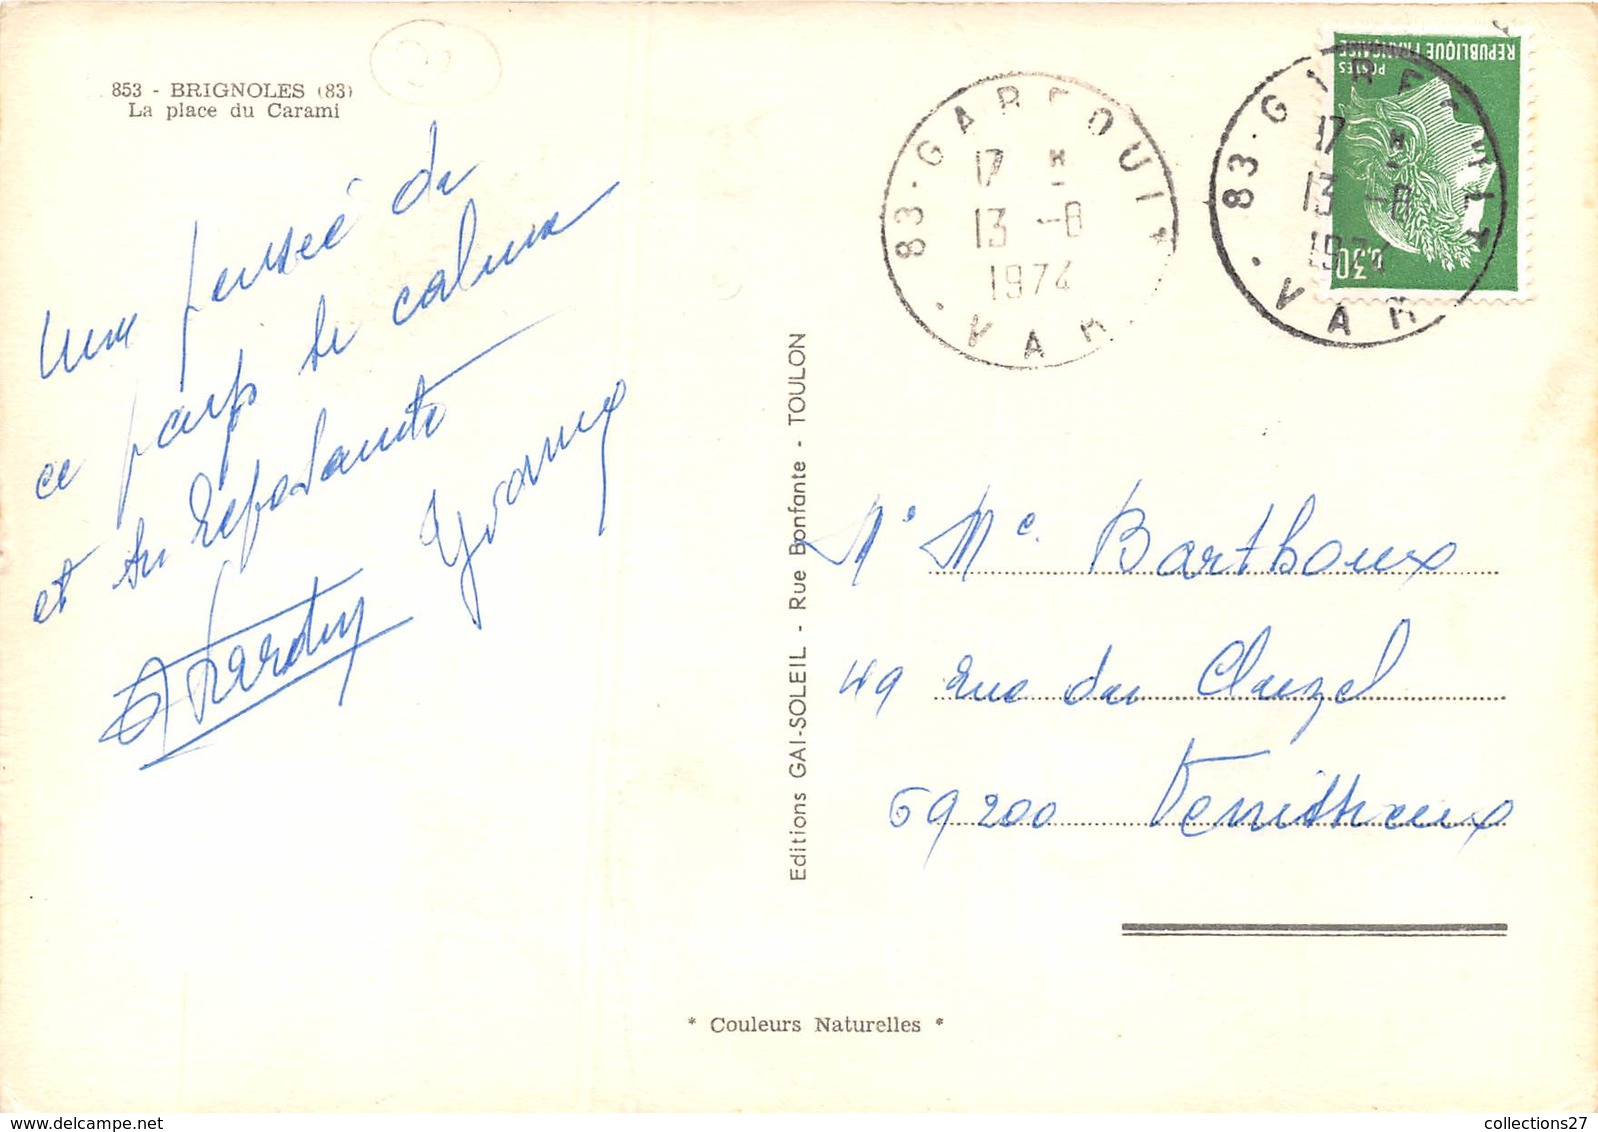 853 - BRIGNOLES (83)
La place du Carami
Une pensée de
ce pays de calme
et du Reposante
Yvonne
83 - GAREOULT
17 H
13 -8
1974
VAR
83 - GAREOULT
17 H
13 -8
1974
VAR
REPUBLIQUE FRANÇAISE
POSTES
0,30
Editions GAI-SOLEIL - Rue Bonfante - TOULON
Mr Me Barthoux
49 rue du Cluzel
69200 Vénissieux
* Couleurs Naturelles *
collections27